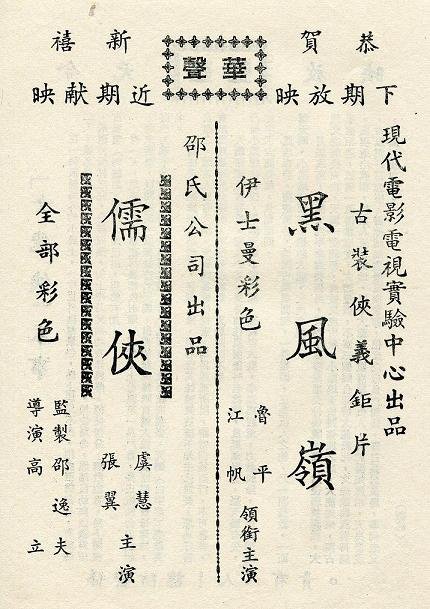 恭賀
華聲
新禧
下期放映
近期献映
現代電影電視實驗中心出品
古裝俠義鉅片
黑風嶺
伊士曼彩色
魯平
江帆
領銜主演
邵氏公司出品
儒俠
虞慧
張翼
主演
全部彩色
監製邵逸夫
導演高立